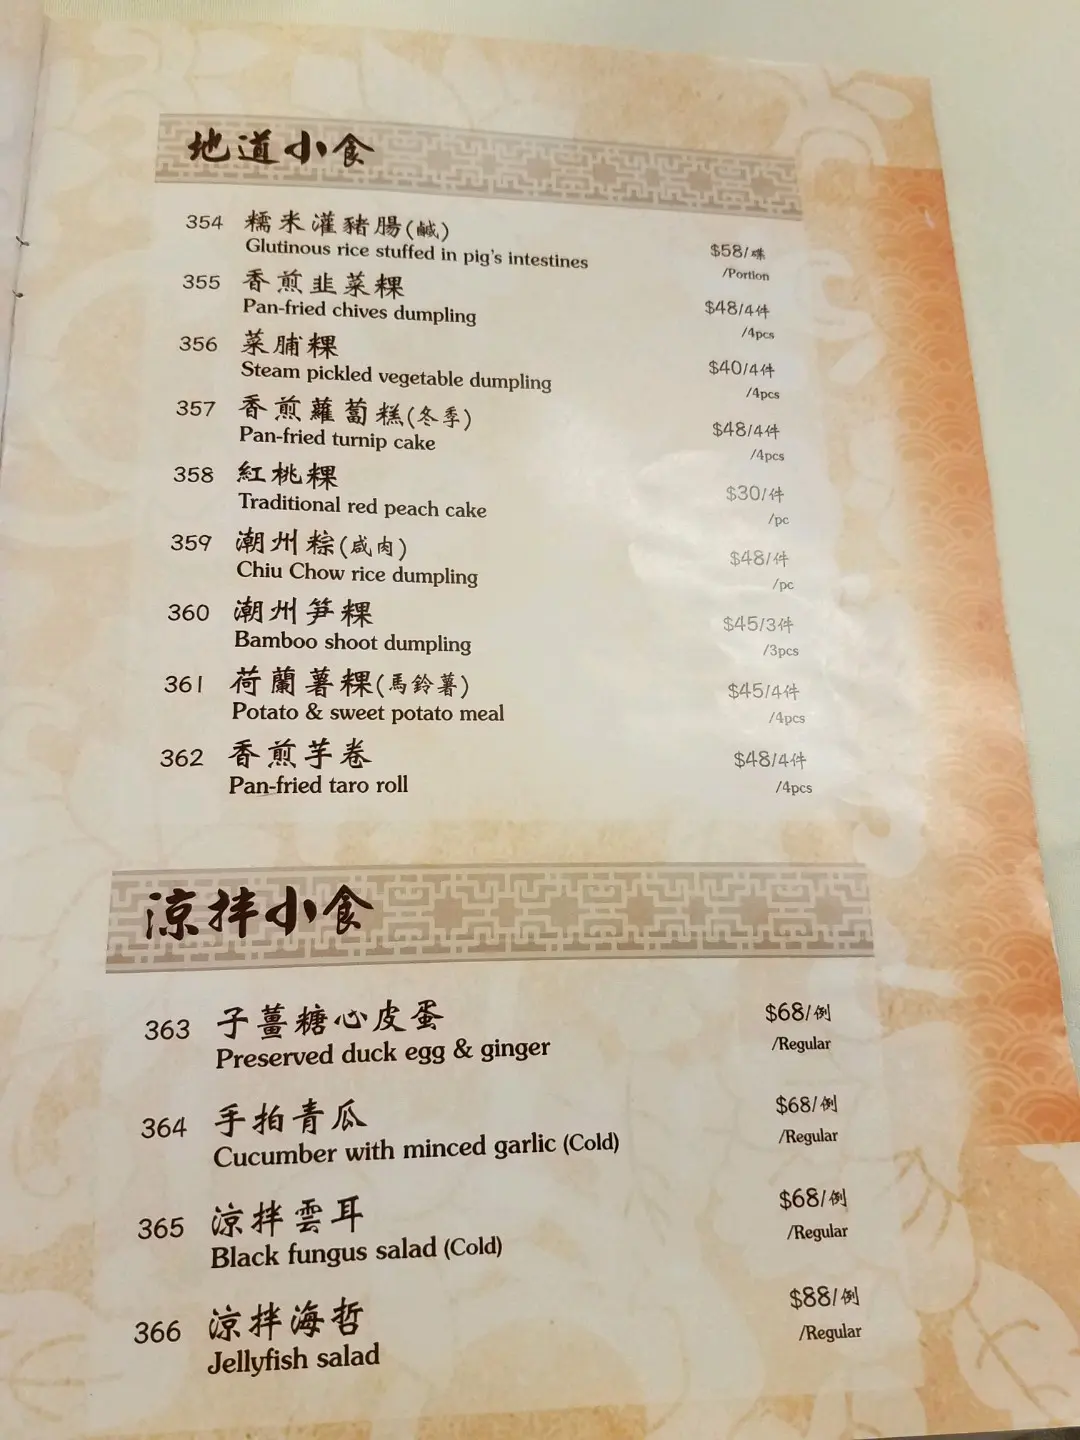 地道小食
354 糯米灌豬腸(鹹) $58/碟
Glutinous rice stuffed in pig's intestines /Portion
355 香煎韭菜粿 $48/4件
Pan-fried chives dumpling /4pcs
356 菜脯粿 $40/4件
Steam pickled vegetable dumpling /4pcs
357 香煎蘿蔔糕(冬季) $48/4件
Pan-fried turnip cake /4pcs
358 紅桃粿 $30/件
Traditional red peach cake /pc
359 潮州粽(咸肉) $48/件
Chiu Chow rice dumpling /pc
360 潮州筍粿 $45/3件
Bamboo shoot dumpling /3pcs
361 荷蘭薯粿(馬鈴薯) $45/4件
Potato & sweet potato meal /4pcs
362 香煎芋卷 $48/4件
Pan-fried taro roll /4pcs
涼拌小食
363 子薑糖心皮蛋 $68/例
Preserved duck egg & ginger /Regular
364 手拍青瓜 $68/例
Cucumber with minced garlic (Cold) /Regular
365 涼拌雲耳 $68/例
Black fungus salad (Cold) /Regular
366 涼拌海哲 $88/例
Jellyfish salad /Regular